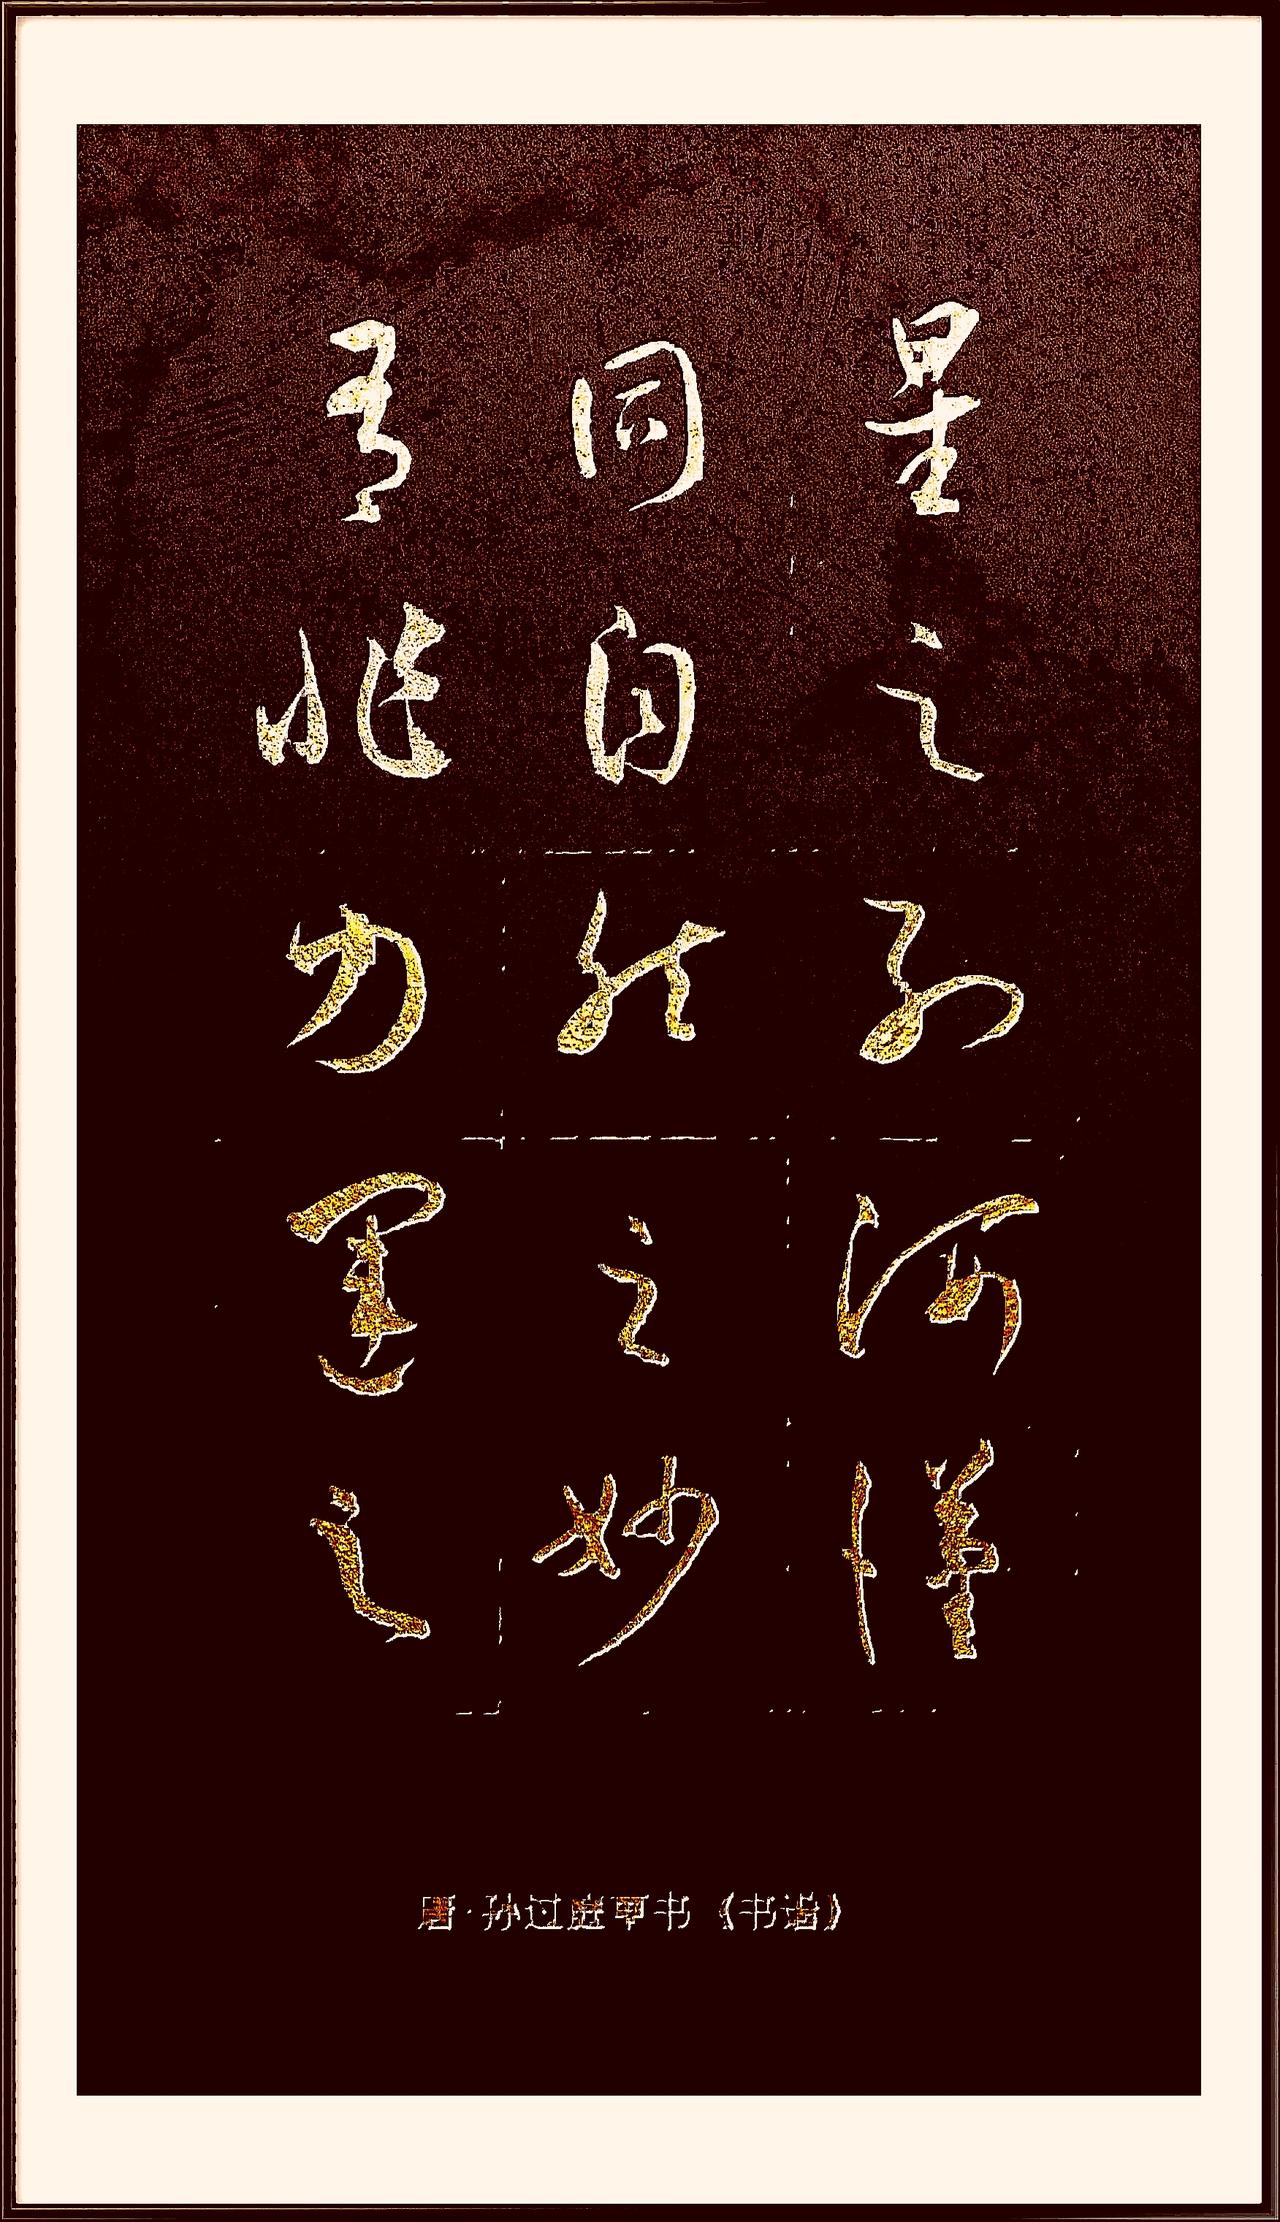 星之列河漢
同自然之妙
有非力運之
唐·孙过庭草书《书谱》